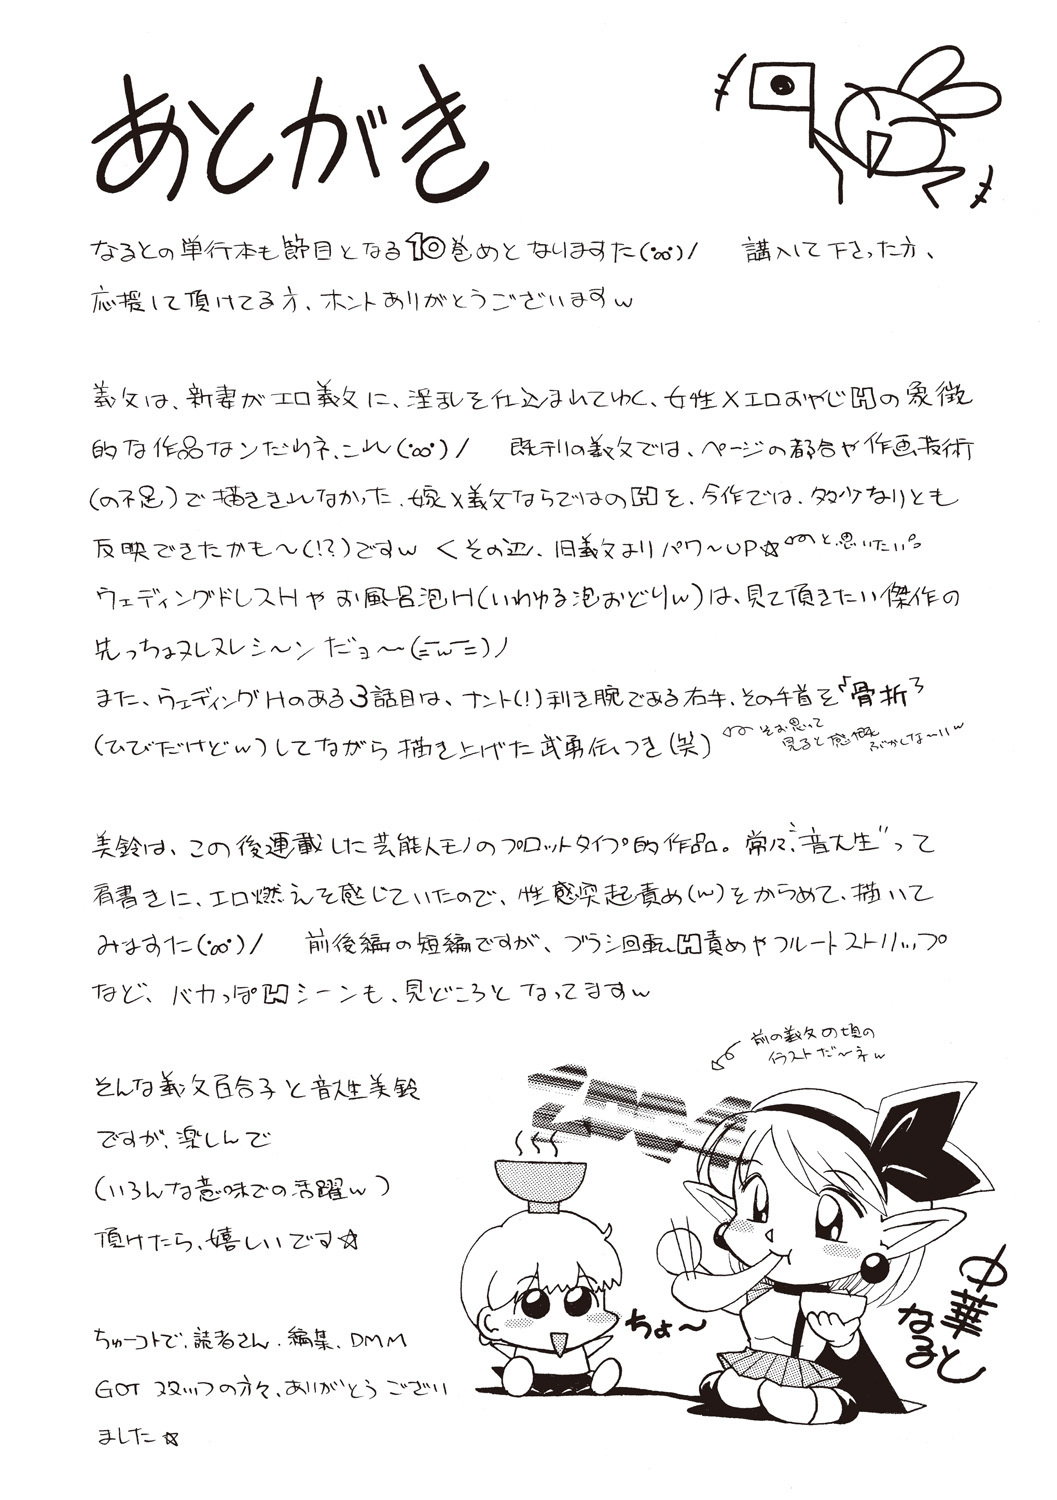 あとがき
なるとの単行本も節目となる10巻めとなりますた(･ω･)ﾉ 講入して下さった方、
応援して頂けてる方、ホントありがとうございますw
義父は、新妻がエロ義父に、淫乱を仕込まれてゆく、女性×エロおやじHの象徴
的な作品なンだわネ、これ(･ω･)ﾉ 既刊の義父では、ページの都合や作画技術
(の不足)で描ききれなかった、嫁×義父ならではのHを、今作では、多少なりとも
反映できたかも〜(!?)ですw くその辺、旧義父よりパワ〜UP☆ と思いたい。
ウェディングドレスHやお風呂泡H(いわゆる泡おどりw)は、見て頂きたい傑作の
先っちょヌレヌレシ〜ンだョ〜(=w=)ﾉ
また、ウェディングHのある3話目は、ナント(!)利き腕である右手、その手首を｢骨折｣
(ひびだけどw)してながら描き上げた武勇伝つき(笑)
そお思って
見ると感慨
ぶかしな〜いw
美鈴は、この後連載した芸能人モノのプロットタイプ的作品。常々、"音大生"って
肩書きに、エロ燃えを感じていたので、性感突起責め(w)をからめて、描いて
みますた(･ω･)ﾉ 前後編の短編ですが、ブラシ回転H責めやフルートストリップ
など、バカっぽHシーンも、見どころとなってますw
前の義父の頃の
イラストだ〜ネw
そんな義父百合子と音大生美鈴
ですが、楽しんで
(いろんな意味での活躍w)
頂けたら、嬉しいです☆
ちょ〜
中華
なると
ちゅーコトで、読者さん、編集、DMM
GOTスタッフの方々、ありがとうござい
ました☆